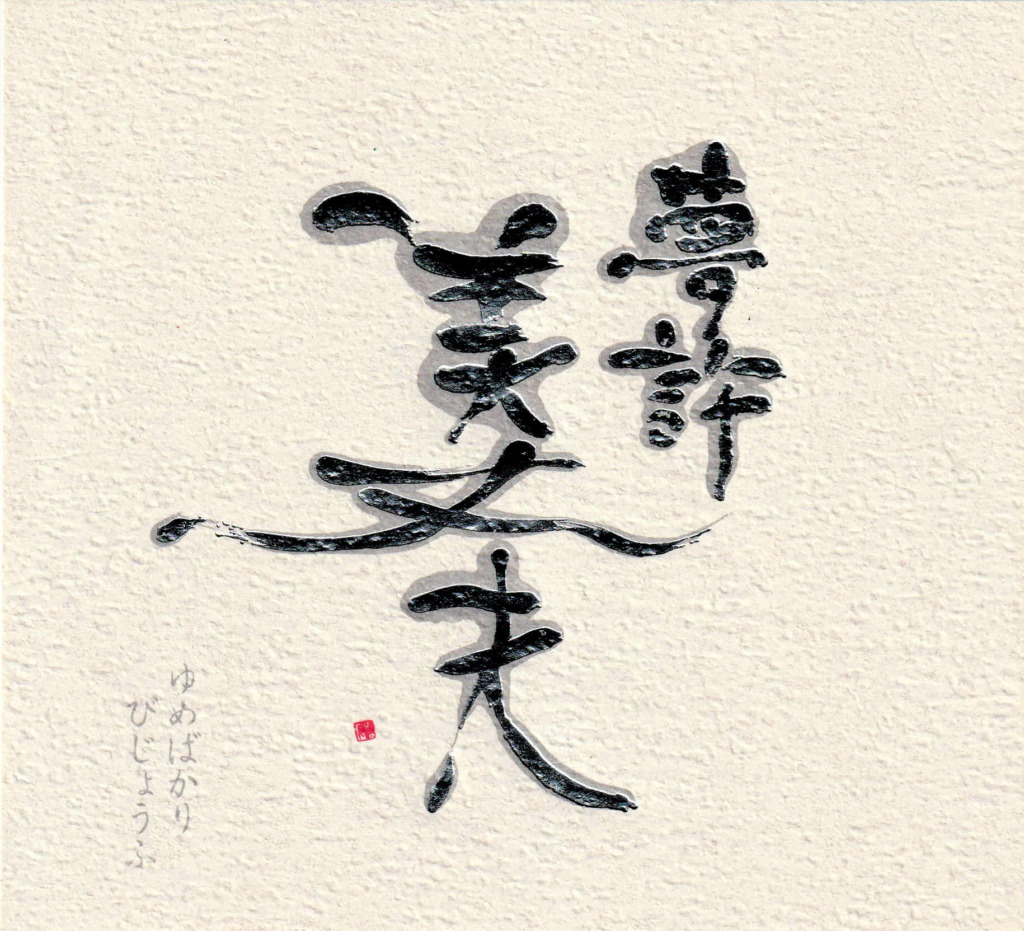 夢許
美丈夫
ゆめばかり
びじょうふ